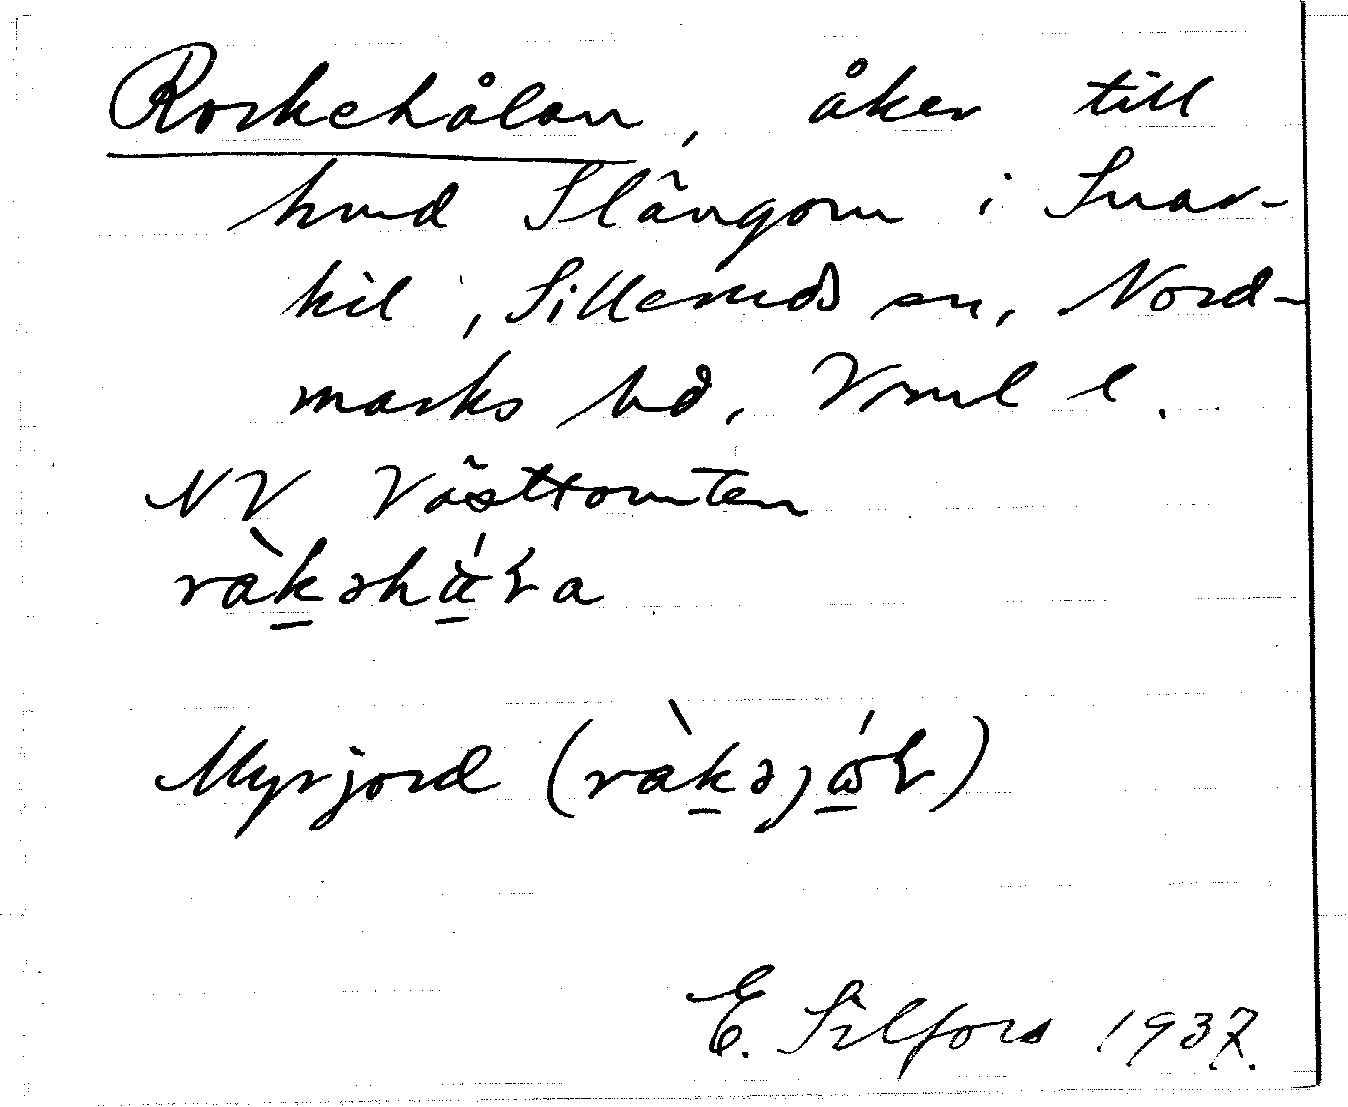 Rorkehålan, åker till
hmd Slängom i Snar-
kil, Silleruds sn, Nord-
marks hd, Vrml l.
NV Västtomten
ràk̲əhά̲ƚa

Myrjord (ràk̲əjώ̲ƚ)

E. Silfors 1937.